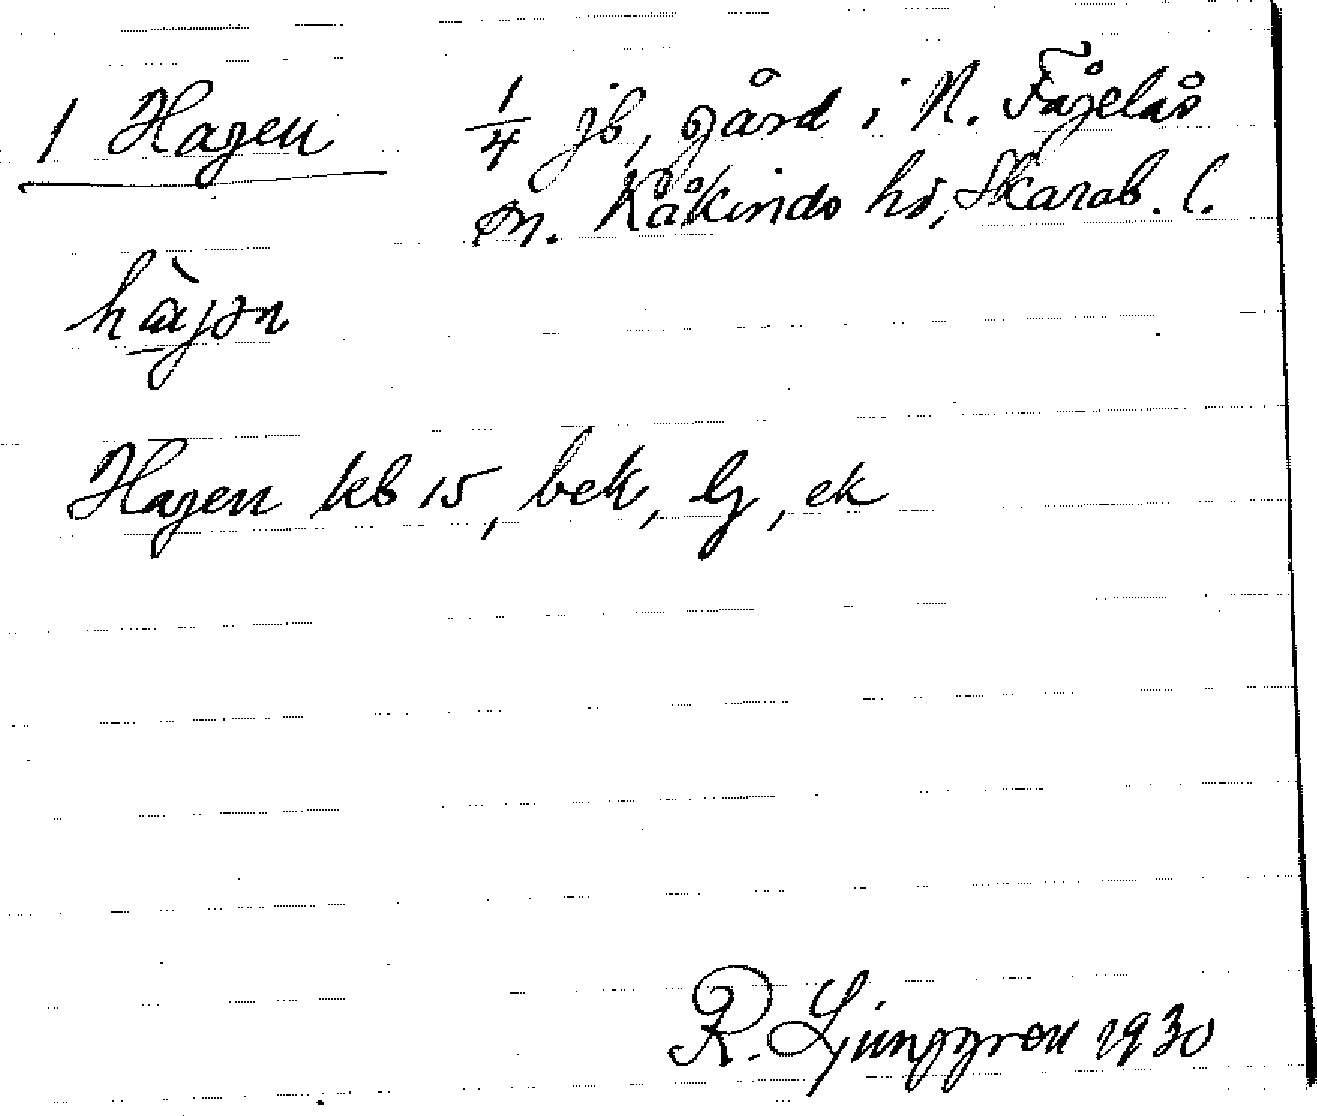 1 Hagen 1/4 jb, gård i N. Fågelås
sn. Kåkinds hd, Skarab. l.
hàgən
Hagen kb 15, bek, lg, ek
R. Ljunggren 1930